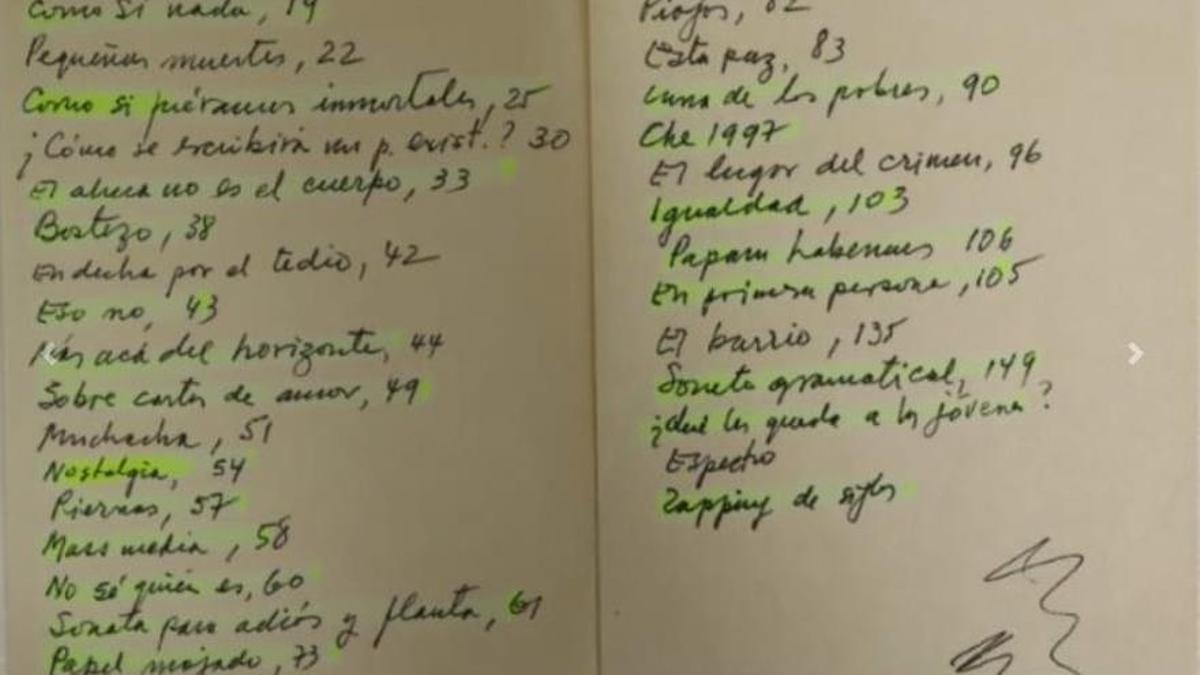 Como si nada, 19
Pequeñas muertes, 22
Como si fuéramos inmortales, 25
¿Cómo se escribirá un p. exist.? 30
El alma no es el cuerpo, 33
Bostezo, 38
Endecha por el tedio, 42
Eso no, 43
Más acá del horizonte, 44
Sobre cartas de amor, 49
Muchacha, 51
Nostalgia, 54
Piernas, 57
Mass media, 58
No sé quién es, 60
Sonata para adiós y flauta, 61
Papel mojado, 73
Piojos, 82
Esta paz, 83
Luna de los pobres, 90
Che 1997
El lugar del crimen, 96
Igualdad, 103
Papam habemus 106
En primera persona, 105
El barrio, 135
Soneto gramatical, 149
¿Qué les queda a los jóvenes?
Espectro
Zapping de siglos